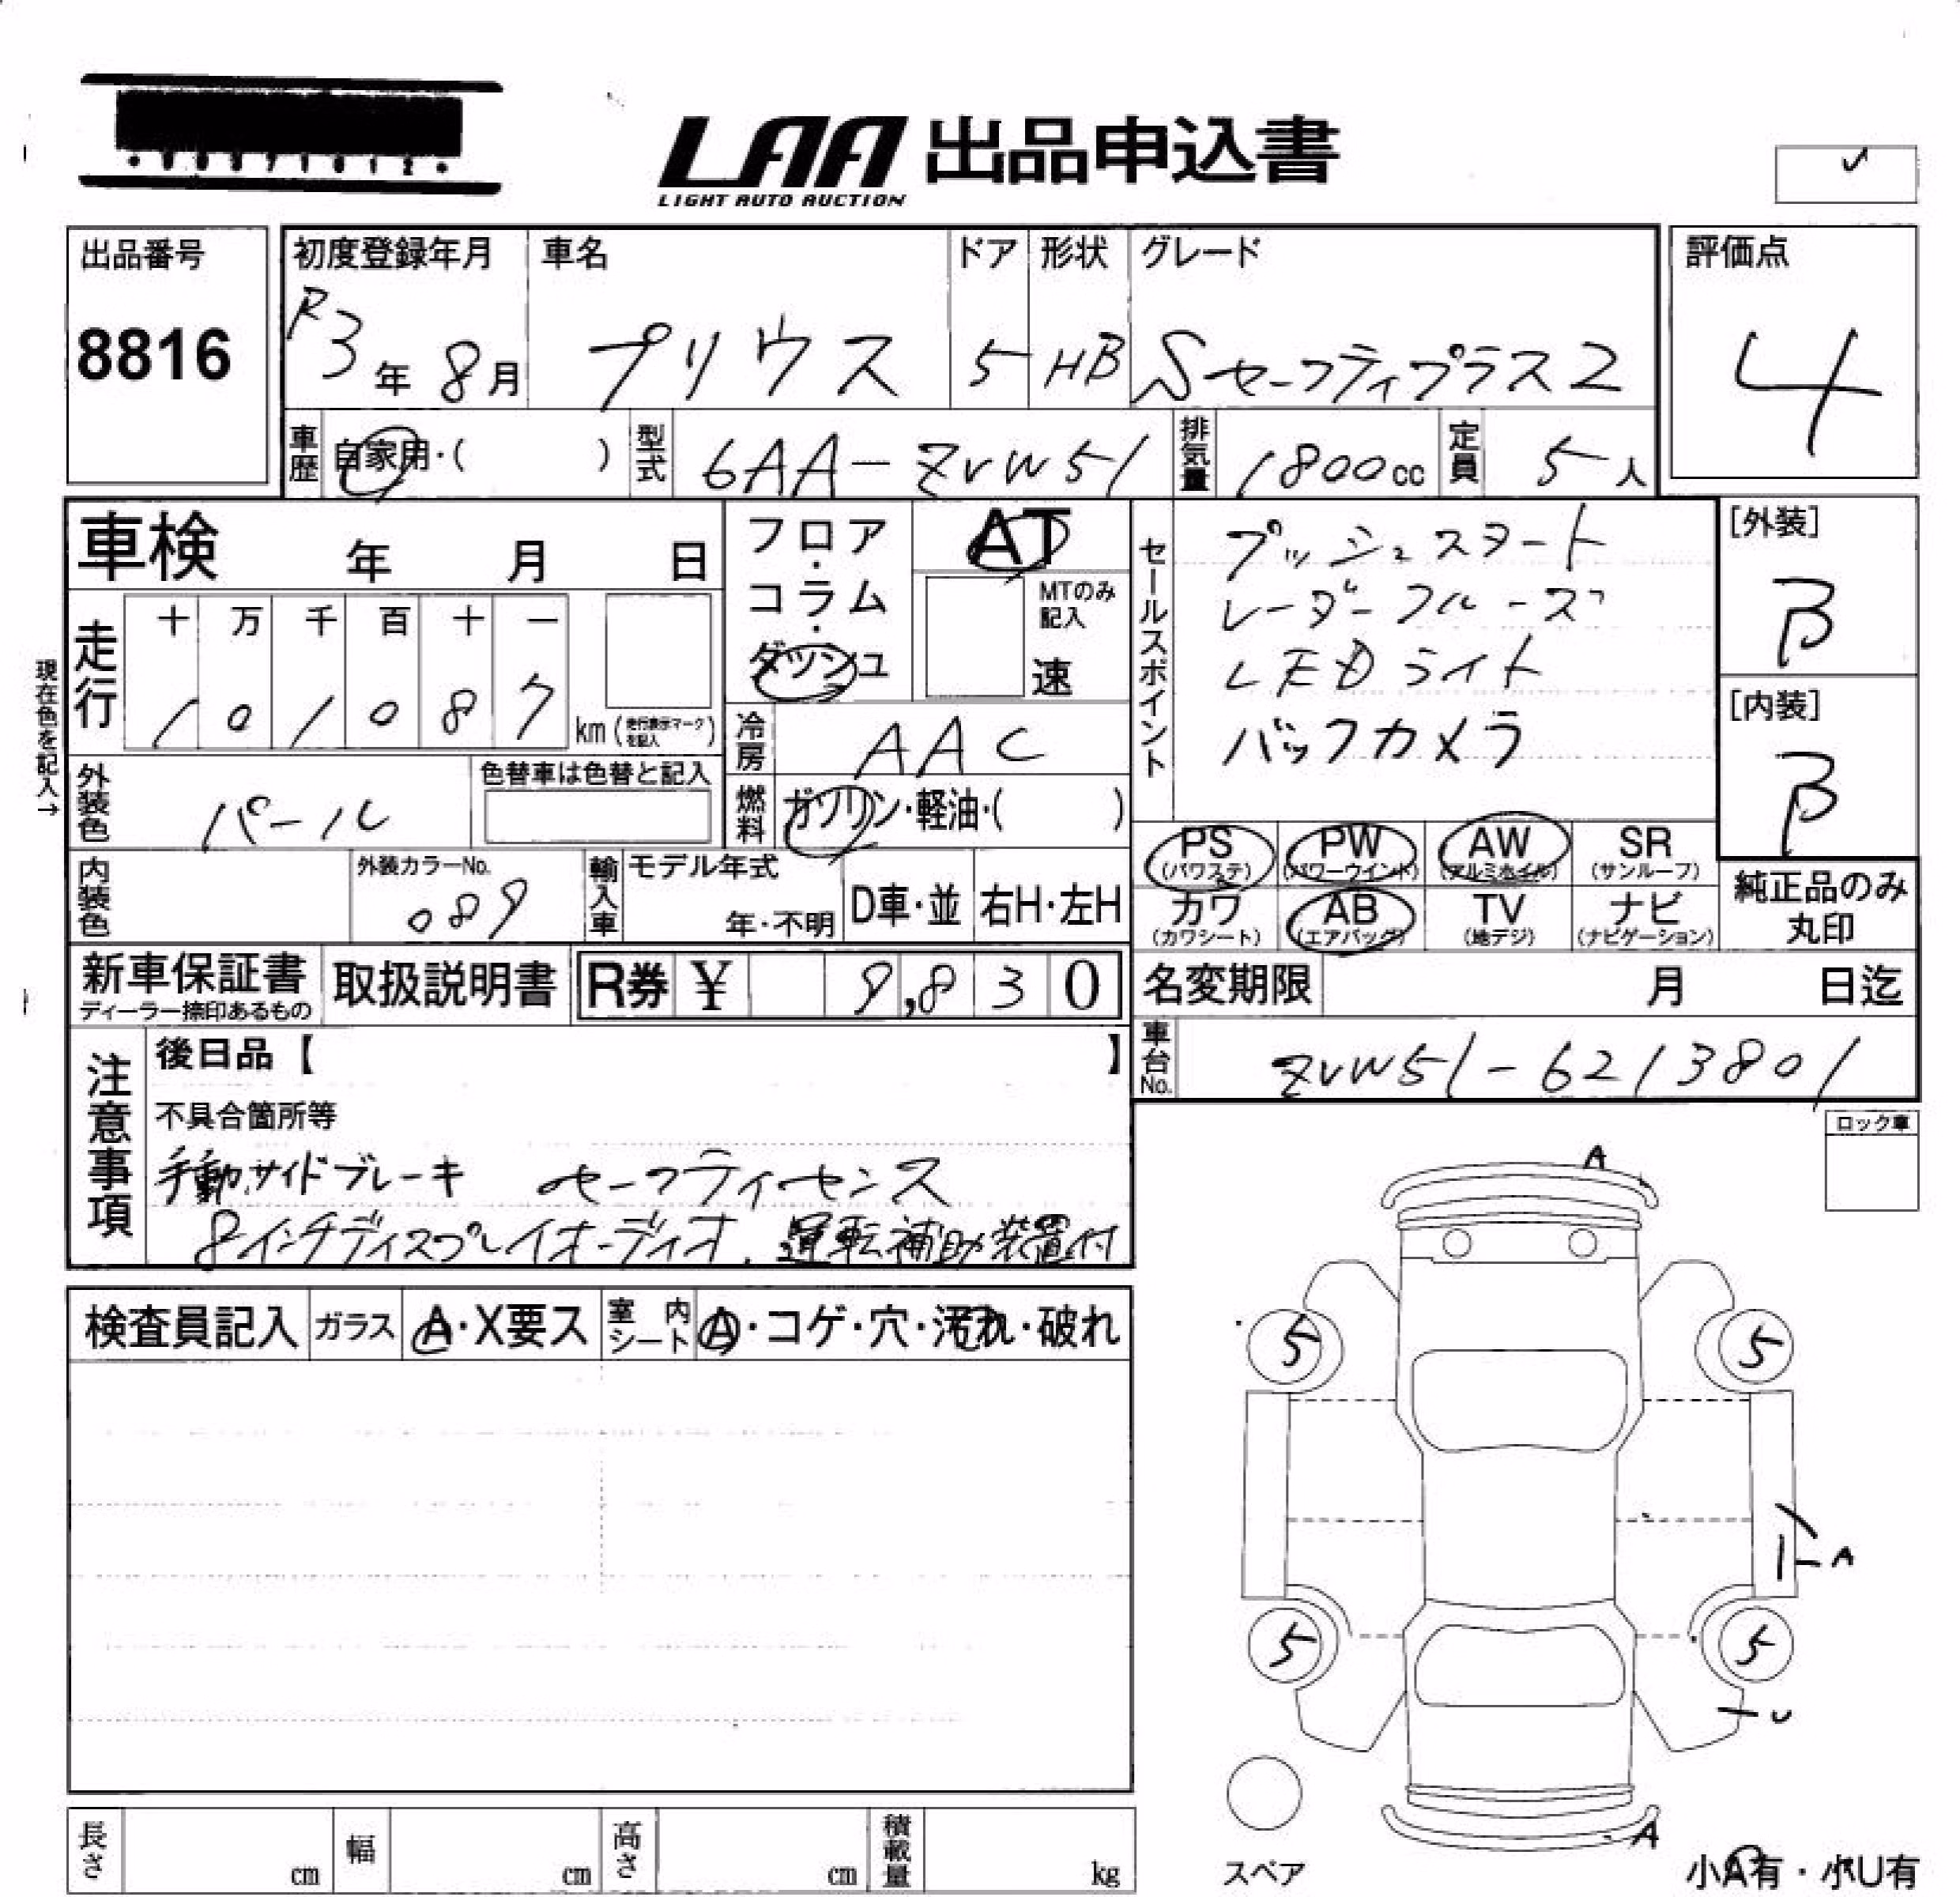 LAA 出品申込書
LIGHT AUTO AUCTION
出品番号
8816
初度登録年月
R3年 8月
車名
プリウス
ドア
5
形状
HB
グレード
Sセーフティプラス2
評価点
4
車歴
自家用・( )
型式
6AA-ZVW51
排気量
1800cc
定員
5人
車検 年 月 日
走行
十 万 千 百 十 一
1 0 1 0 8 7
km (走行表示マークを記入)
現在色を記入→
外装色
パール
色替車は色替と記入
内装色
外装カラーNo.
089
輸入車
モデル年式
年・不明
D車・並
右H・左H
フロア・コラム・ダッシュ
AT
MTのみ記入
速
冷房
AAC
燃料
ガソリン・軽油・( )
セールスポイント
プッシュスタート
レーダークルーズ
LEDライト
バックカメラ
[外装]
B
[内装]
B
PS
(パワステ)
PW
(パワーウインド)
AW
(アルミホイル)
SR
(サンルーフ)
カワ
(カワシート)
AB
(エアバッグ)
TV
(地デジ)
ナビ
(ナビゲーション)
純正品のみ
丸印
新車保証書
ディーラー捺印あるもの
取扱説明書
R券 ¥ 9,830
名変期限 月 日迄
車台No.
ZVW51-6213801
注意事項
後日品【 】
不具合箇所等
手動サイドブレーキ セーフティセンス
8インチディスプレイオーディオ、運転補助装置付
ロック車
検査員記入
ガラス
A・X要ス
室内シート
A・コゲ・穴・汚れ・破れ
A
5
5
A
5
5
U
A
スペア
小A有・小U有
長さ cm
幅 cm
高さ cm
積載量 kg